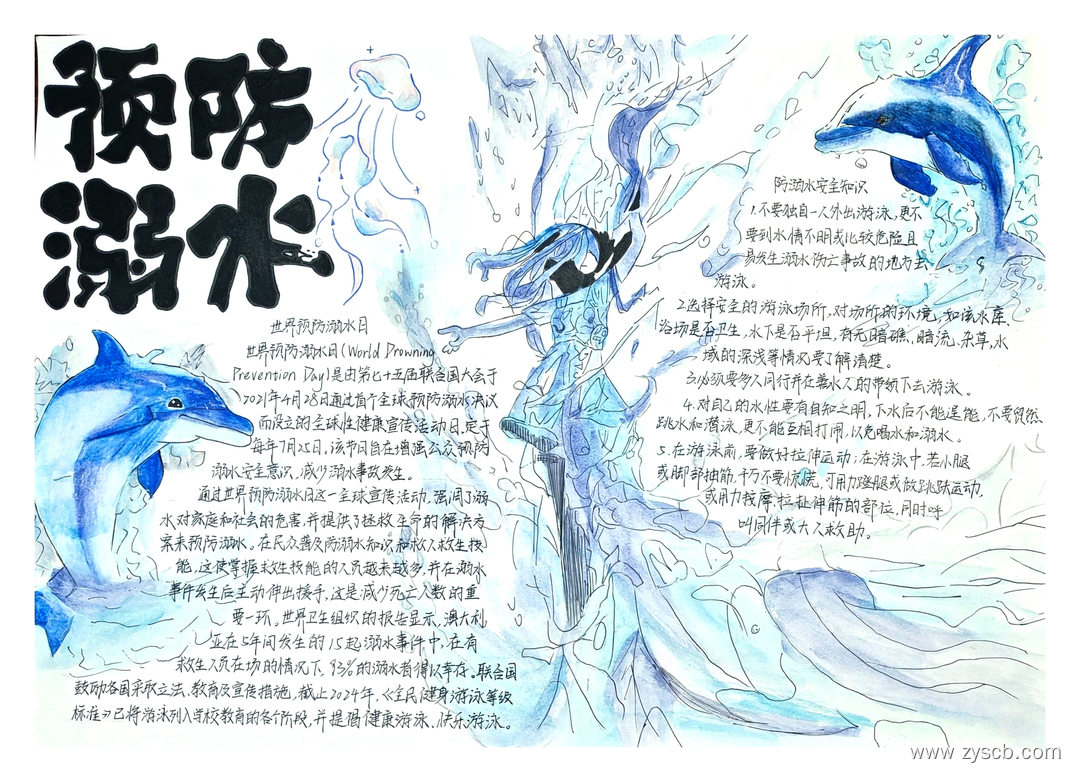 预防
溺水
世界预防溺水日
世界预防溺水日(World Drowning
Prevention Day)是由第七十五届联合国大会于
2021年4月28日通过首个全球预防溺水决议
而设立的全球性健康宣传活动日,定于
每年7月25日,该节日旨在增强公众预防
溺水安全意识,减少溺水事故发生。
通过世界预防溺水日这一全球宣传活动,强调了溺
水对家庭和社会的危害,并提供了拯救生命的解决方
案来预防溺水。在民众普及防溺水知识和救人救生技
能,这使掌握救生技能的人员越来越多,并在溺水
事件发生后主动伸出援手,这是减少死亡人数的重
要一环。世界卫生组织的报告显示,澳大利
亚在5年间发生的15起溺水事件中,在有
救生人员在场的情况下,93%的溺水者得以幸存。联合国
鼓励各国采取立法、教育及宣传措施,截止2024年,《全民健身游泳等级
标准》已将游泳列入学校教育的各个阶段,并提倡健康游泳、快乐游泳。
防溺水安全知识
1.不要独自一人外出游泳,更不
要到水情不明或比较危险且
易发生溺水伤亡事故的地方去
游泳。
2.选择安全的游泳场所,对场所的环境,如该水库、
浴场是否卫生,水下是否平坦,有无暗礁、暗流、杂草,水
域的深浅等情况要了解清楚。
3.必须要多人同行并在靠水人的带领下去游泳。
4.对自己的水性要有自知之明,下水后不能逞能,不要贸然
跳水和潜泳,更不能互相打闹,以免喝水和溺水。
5.在游泳前,要做好拉伸运动;在游泳中,若小腿
或脚部抽筋,千万不要惊慌,可用力蹬腿或做跳跃运动,
或用力按摩、拉扯伸筋的部位,同时呼
叫同伴或大人救助。
www.zyscb.com